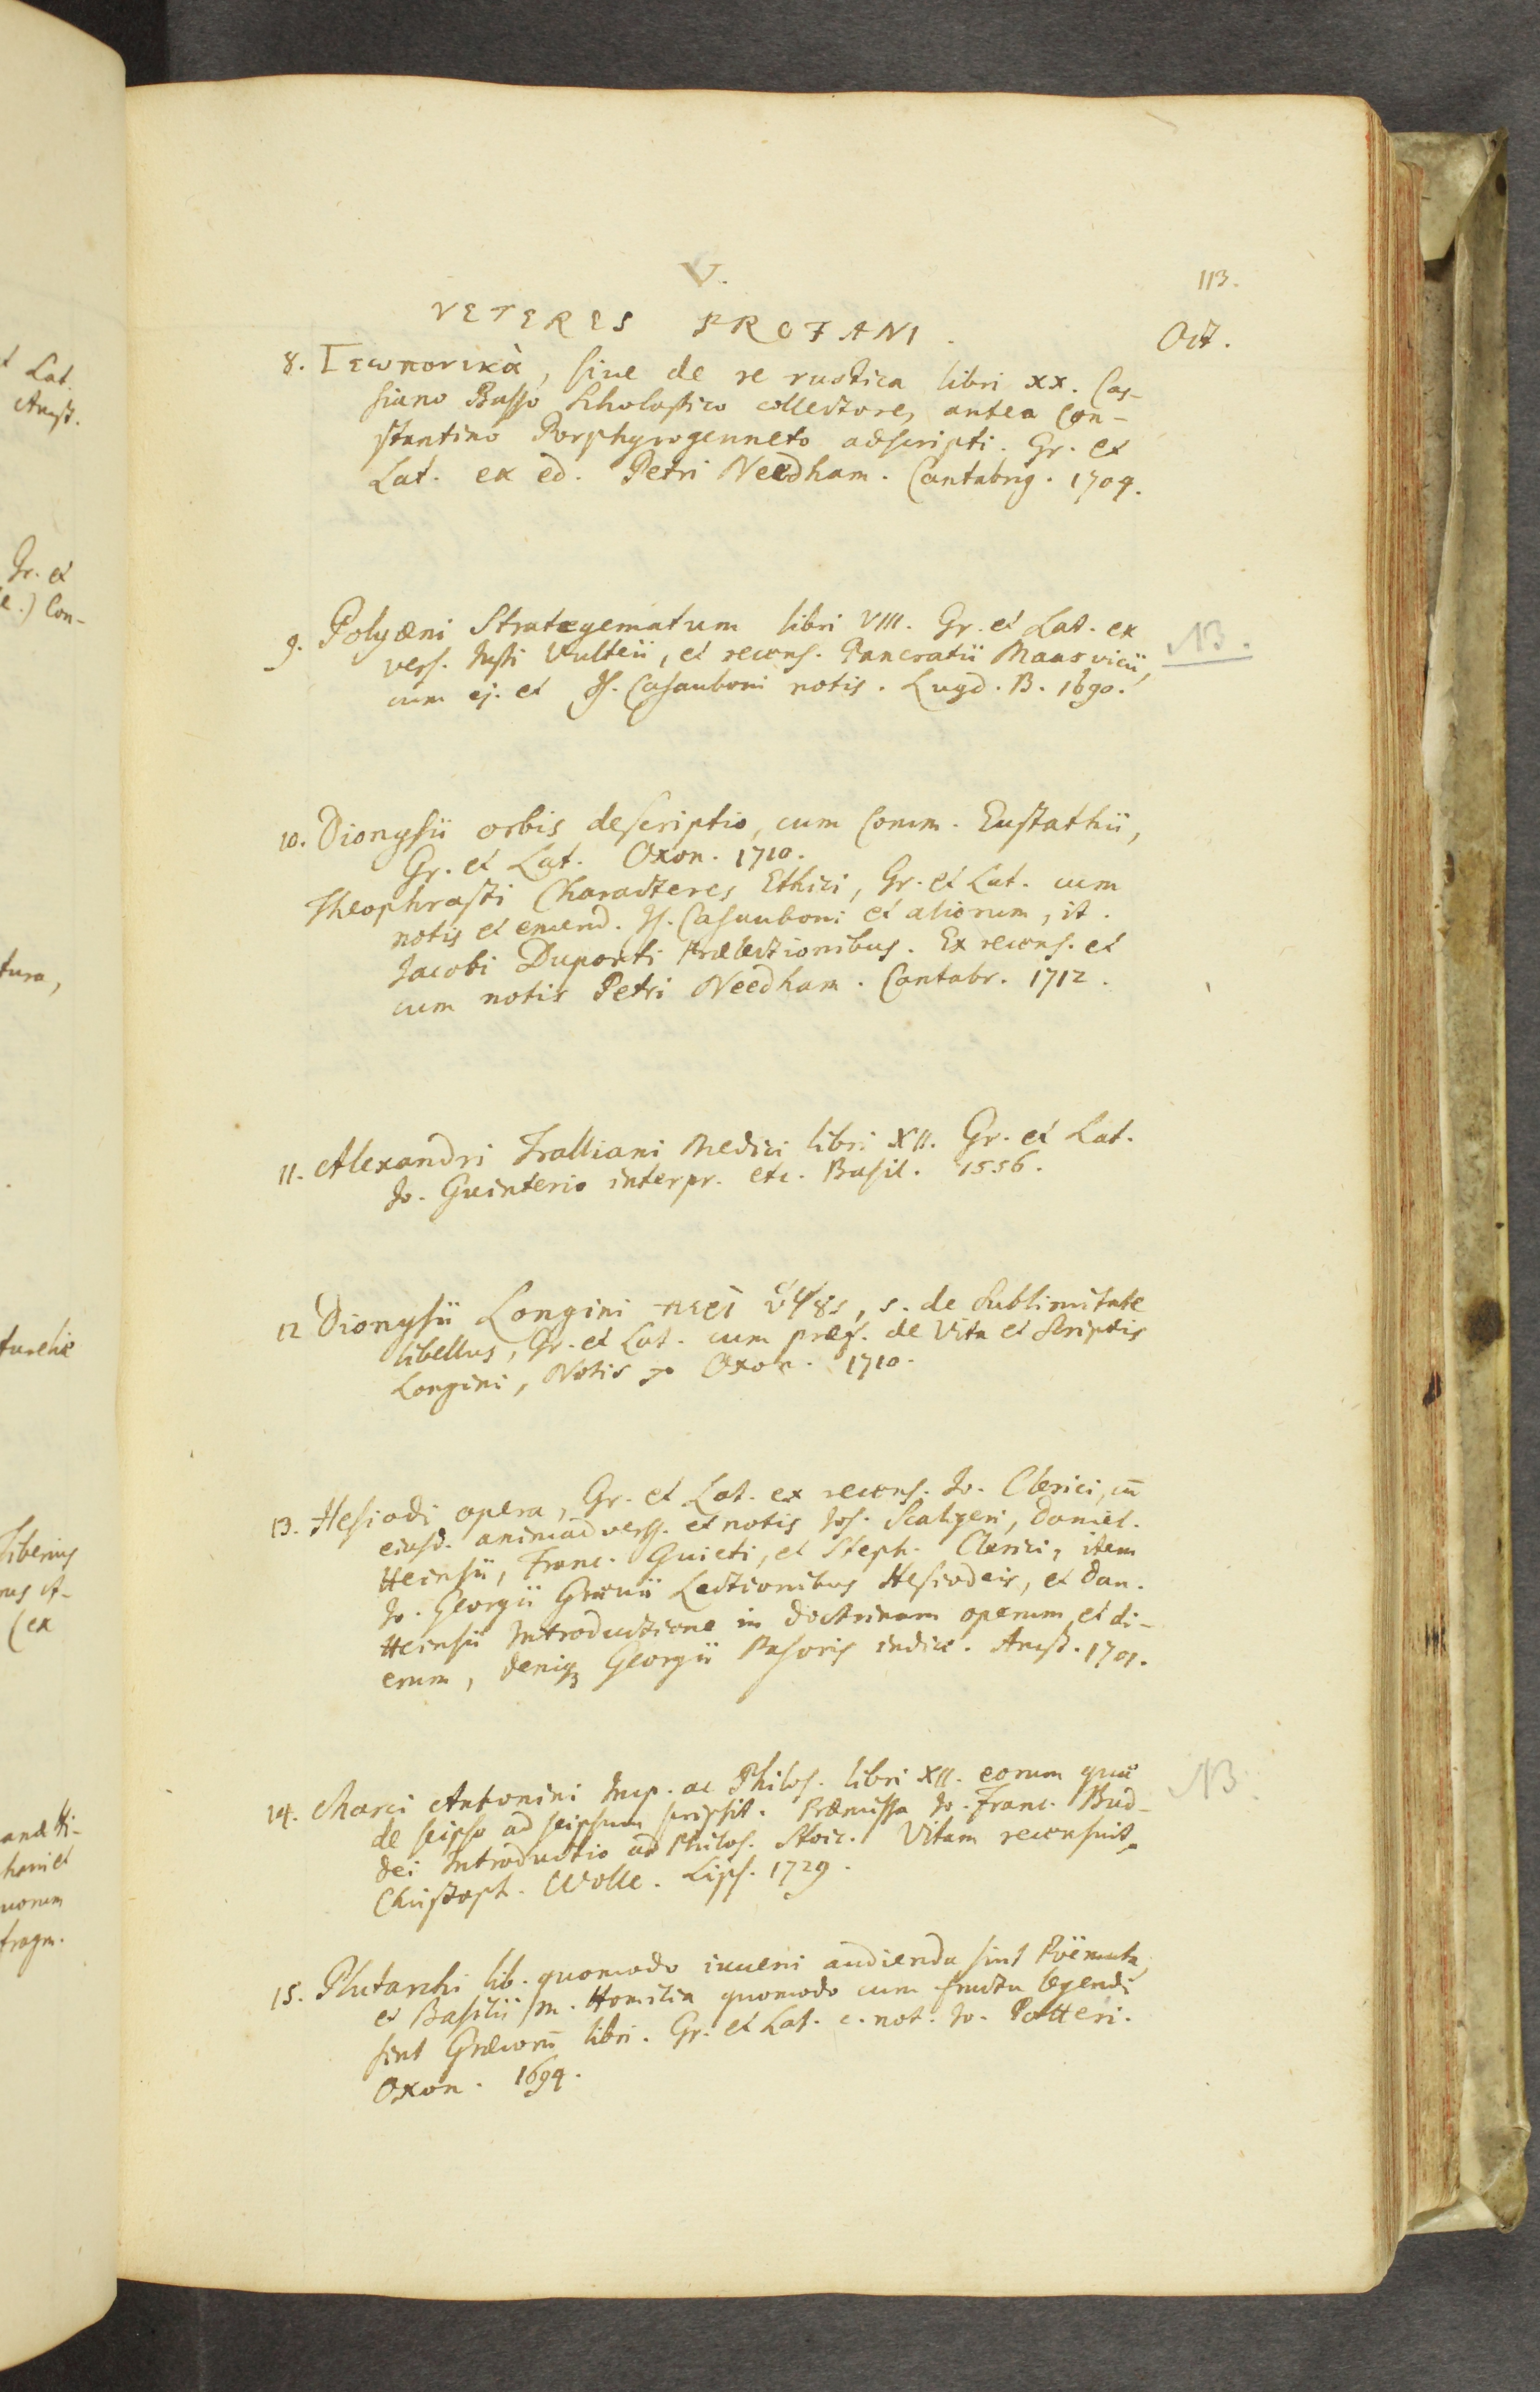 V.
113.
VETERES PROFANI.
Oct.
8. Γεωπονικὰ, siue de re rustica libri xx. Cas-
siano Basso Scholastico collectore, antea Con-
stantino Porphyrogenneto adscripti. Gr. et
Lat. ex ed. Petri Needham. Cantabrig. 1704.
9. Polyæni Strategematum libri VIII. Gr. et Lat. ex
vers. Justi Vulteii, et recens. Pancratii Maasvicii,
cum ej. et Js. Casauboni notis. Lugd. B. 1690.
NB.
10. Dionysii orbis descriptio, cum Comm. Eustathii,
Gr. et Lat. Oxon. 1710.
Theophrasti Characteres Ethici, Gr. et Lat. cum
notis et emend. Js. Casauboni et aliorum, it.
Jacobi Duporti Prælectionibus. Ex recens. et
cum notis Petri Needham. Cantabr. 1712.
11. Alexandri Tralliani Medici libri XII. Gr. et Lat.
Jo. Guinterio interpr. etc. Basil. 1556.
12 Dionysii Longini περὶ ὕψȣς, s. de Sublimitate
libellus, Gr. et Lat. cum præf. de Vita et Scriptis
Longini, Notis Oxon. 1710.
13. Hesiodi opera, Gr. et Lat. ex recens. Jo. Clerici, cū
eiusd. animadverss. et notis Jos. Scaligeri, Daniel.
Heinsii, Franc. Guieti, et Steph. Clerici, item
Jo. Georgii Grævii Lectionibus Hesiodeis, et Dan.
Heinsii Introductione in doctrinam operum et di-
erum, deniqꝫ Georgii Pasoris indice. Amst. 1701.
14. Marci Antonini Imp. ac Philos. libri XII. eorum quæ
de seipso ad seipsum scripsit. Præmissa Jo. Franc. Bud-
dei Introductio ad Philos. Stoic. Vitam recensuit
Christoph. Wolle. Lips. 1729.
NB.
15. Plutarchi lib. quomodo iuueni audienda sint Poëmata,
et Basilii M. Homilia quomodo cum fructu legendi
sint Græcorū libri. Gr. et Lat. c. not. Jo. Potteri.
Oxon. 1694.